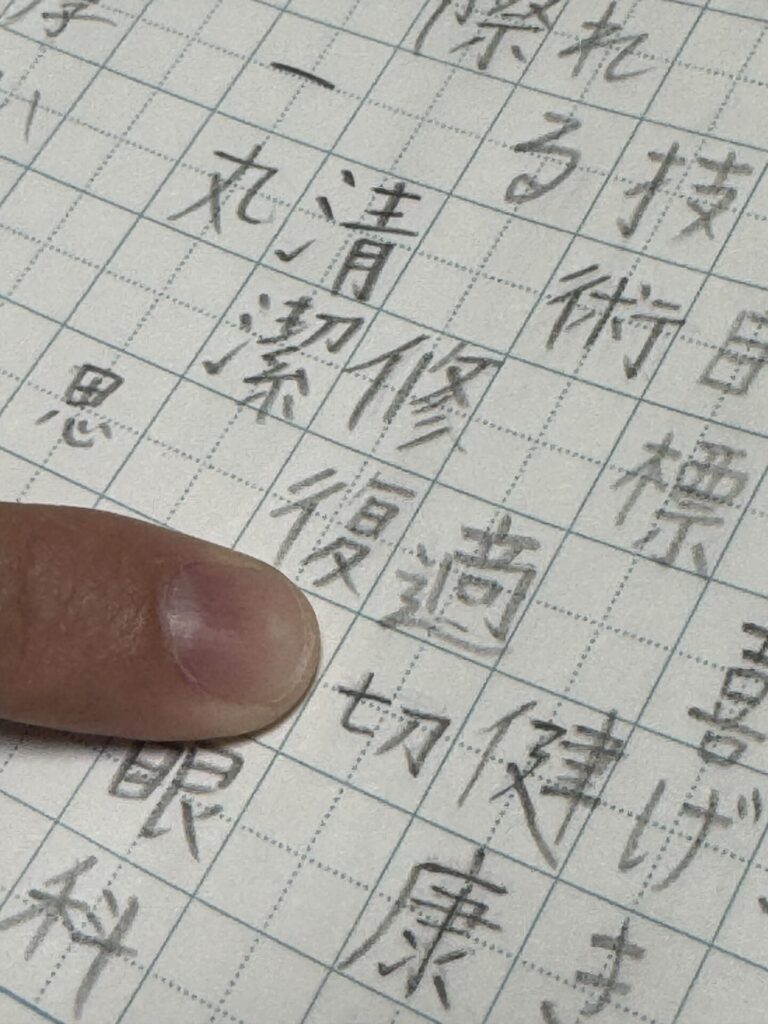 げき
目標 健康
技術 適切
れる 修復 眼科
際 清潔
一丸 思
厚い